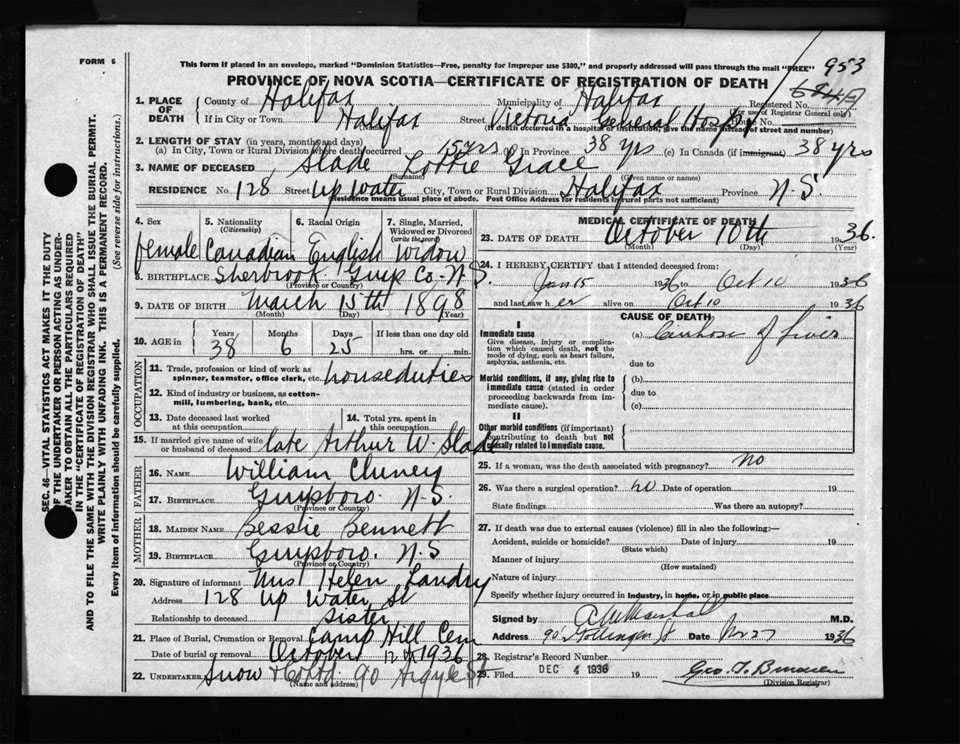 FORM 6
This form if placed in an envelope, marked "Dominion Statistics—Free, penalty for improper use $300," and properly addressed will pass through the mail "FREE"
953
PROVINCE OF NOVA SCOTIA—CERTIFICATE OF REGISTRATION OF DEATH
1. PLACE OF DEATH
County of Halifax Municipality of Halifax Registered No.
(For use of Registrar General only)
If in City or Town Halifax Street Victoria General Hosp House No.
(Name)
(If death occurred in a hospital or institution, give the name instead of street and number)
2. LENGTH OF STAY (in years, months and days)
(a) In City, Town or Rural Division where death occurred 15 yrs (b) In Province 38 yrs (c) In Canada (if immigrant) 38 yrs
3. NAME OF DECEASED Slade Lottie Grace
(Surname) (Given name or names)
RESIDENCE No. 128 Street Up Water City, Town or Rural Division Halifax Province N.S.
(Residence means usual place of abode. Post Office Address for residents in rural parts not sufficient)
4. Sex 5. Nationality (Citizenship) 6. Racial Origin 7. Single, Married, Widowed or Divorced (write the word)
female Canadian English Widow
8. BIRTHPLACE Sherbrook Guys Co. N.S.
(Province or Country)
9. DATE OF BIRTH March 15th 1898
(Month) (Day) (Year)
10. AGE in Years Months Days If less than one day old
38 6 25 hrs. or min.
OCCUPATION
11. Trade, profession or kind of work as spinner, teamster, office clerk, etc. houseduties
12. Kind of industry or business, as cotton-mill, lumbering, bank, etc.
13. Date deceased last worked at this occupation 14. Total yrs. spent in this occupation
15. If married give name of wife or husband of deceased late Arthur W. Slade
FATHER
16. NAME William Cluney
17. BIRTHPLACE Guysboro. N.S.
(Province or Country)
MOTHER
18. MAIDEN NAME Bessie Bennett
19. BIRTHPLACE Guysboro. N.S
(Province or Country)
20. Signature of informant Mrs Helen Landry
Address 128 Up Water St
Relationship to deceased Sister
21. Place of Burial, Cremation or Removal Camp Hill Cem
Date of burial or removal October 12th 1936
22. UNDERTAKER Snow & Co Ltd. 90 Argyle St
(Name and address)
MEDICAL CERTIFICATE OF DEATH
23. DATE OF DEATH October 10th 1936.
(Month) (Day) (Year)
24. I HEREBY CERTIFY that I attended deceased from:
Jan 15 1936 to Oct 10 1936
and last saw her alive on Oct 10 1936
CAUSE OF DEATH
I
Immediate cause (a) Cirrhosis of Liver
Give disease, injury or complication which caused death, not the mode of dying, such as heart failure, asphyxia, asthenia, etc.
due to
Morbid conditions, if any, giving rise to immediate cause (stated in order proceeding backwards from immediate cause).
(b)
due to
(c)
II
Other morbid conditions (if important) contributing to death but not causally related to immediate cause.
25. If a woman, was the death associated with pregnancy? no
26. Was there a surgical operation? no Date of operation 19
State findings Was there an autopsy?
27. If death was due to external causes (violence) fill in also the following:—
Accident, suicide or homicide? Date of injury 19
(State which)
Manner of injury
(How sustained)
Nature of injury
Specify whether injury occurred in industry, in home, or in public place
Signed by M.D.
Address 90 Gottingen St Date Nov 27 1936
28. Registrar's Record Number
29. Filed DEC 4 1936 19
(Division Registrar)
SEC. 46—VITAL STATISTICS ACT MAKES IT THE DUTY
OF THE UNDERTAKER OR PERSON ACTING AS UNDERTAKER
TO OBTAIN ALL THE PARTICULARS REQUIRED
IN THE "CERTIFICATE OF REGISTRATION OF DEATH"
AND TO FILE THE SAME WITH THE DIVISION REGISTRAR WHO SHALL ISSUE THE BURIAL PERMIT.
WRITE PLAINLY WITH UNFADING INK. THIS IS A PERMANENT RECORD.
Every item of information should be carefully supplied. (See reverse side for instructions.)